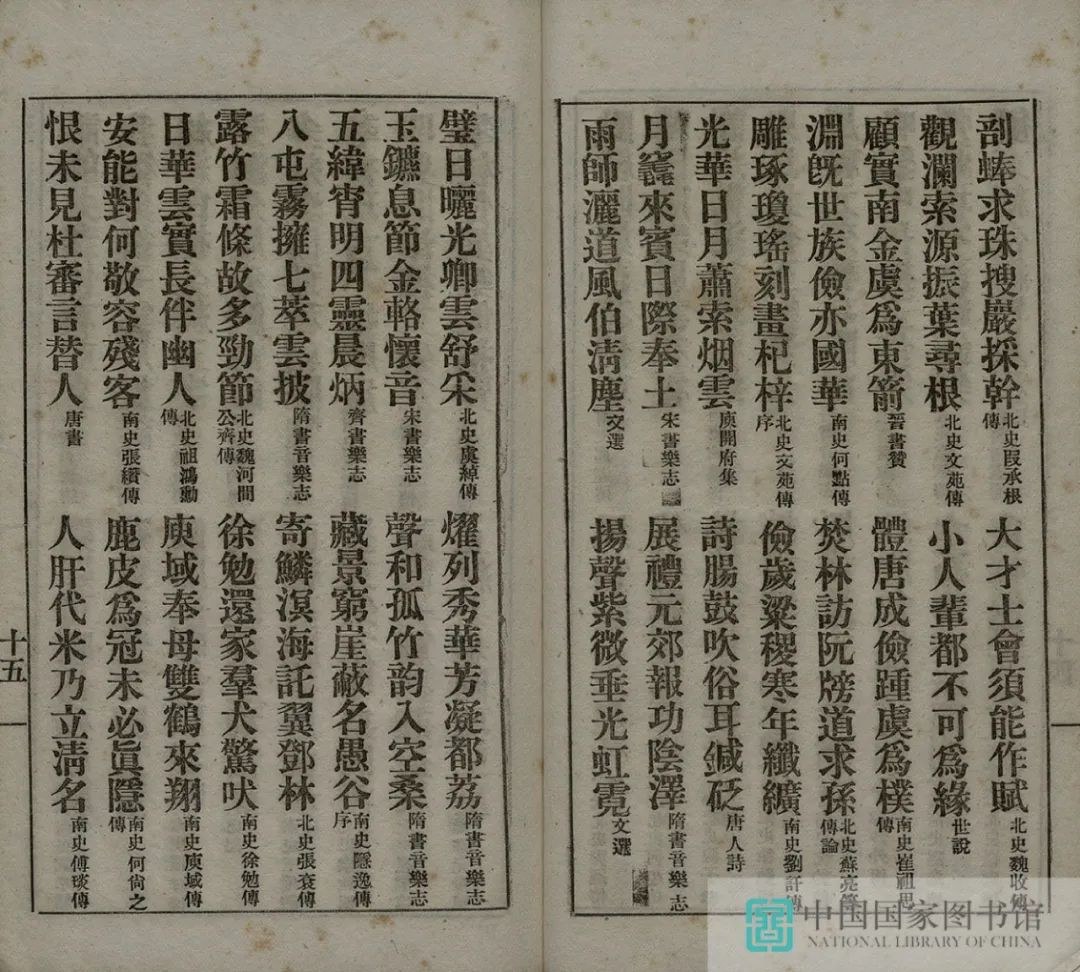 剖蜯求珠搜巖採幹北史段承根傳 大才士會須能作賦北史魏收傳
觀瀾索源振葉尋根北史文苑傳 小人輩都不可爲緣世說
顧實南金虞爲東箭晉書贊 體唐成儉踵虞爲樸南史崔祖思傳
淵旣世族儉亦國華南史何點傳 焚林訪阮牓道求孫北史蘇亮等傳論
雕琢瓊瑤刻畫杞梓北史文苑傳序 儉歲粱稷寒年纖纊南史劉訏傳
光華日月蕭索烟雲庾開府集 詩腸鼓吹俗耳鍼砭唐人詩
月竁來賓日際奉土宋書樂志 展禮元郊報功陰澤隋書音樂志
雨師灑道風伯淸塵文選 揚聲紫微垂光虹霓文選
璧日曬光卿雲舒采北史虞綽傳 燿列秀華芳凝都荔隋書音樂志
玉鑣息節金輅懷音宋書樂志 聲和孤竹韵入空桑隋書音樂志
五緯宵明四靈晨炳齊書樂志 藏景窮崖蔽名愚谷南史隱逸傳序
八屯霧擁七萃雲披隋書音樂志 寄鱗溟海託翼鄧林北史張袞傳
露竹霜條故多勁節北史魏河間公齊傳 徐勉還家羣犬驚吠南史徐勉傳
日華雲實長伴幽人北史祖鴻勳傳 庾域奉母雙鶴來翔南史庾域傳
安能對何敬容殘客南史張纘傳 鹿皮爲冠未必眞隱南史何尙之傳
恨未見杜審言替人唐書 人肝代米乃立淸名南史傅琰傳
十五
中国国家图书馆
NATIONAL LIBRARY OF CHINA